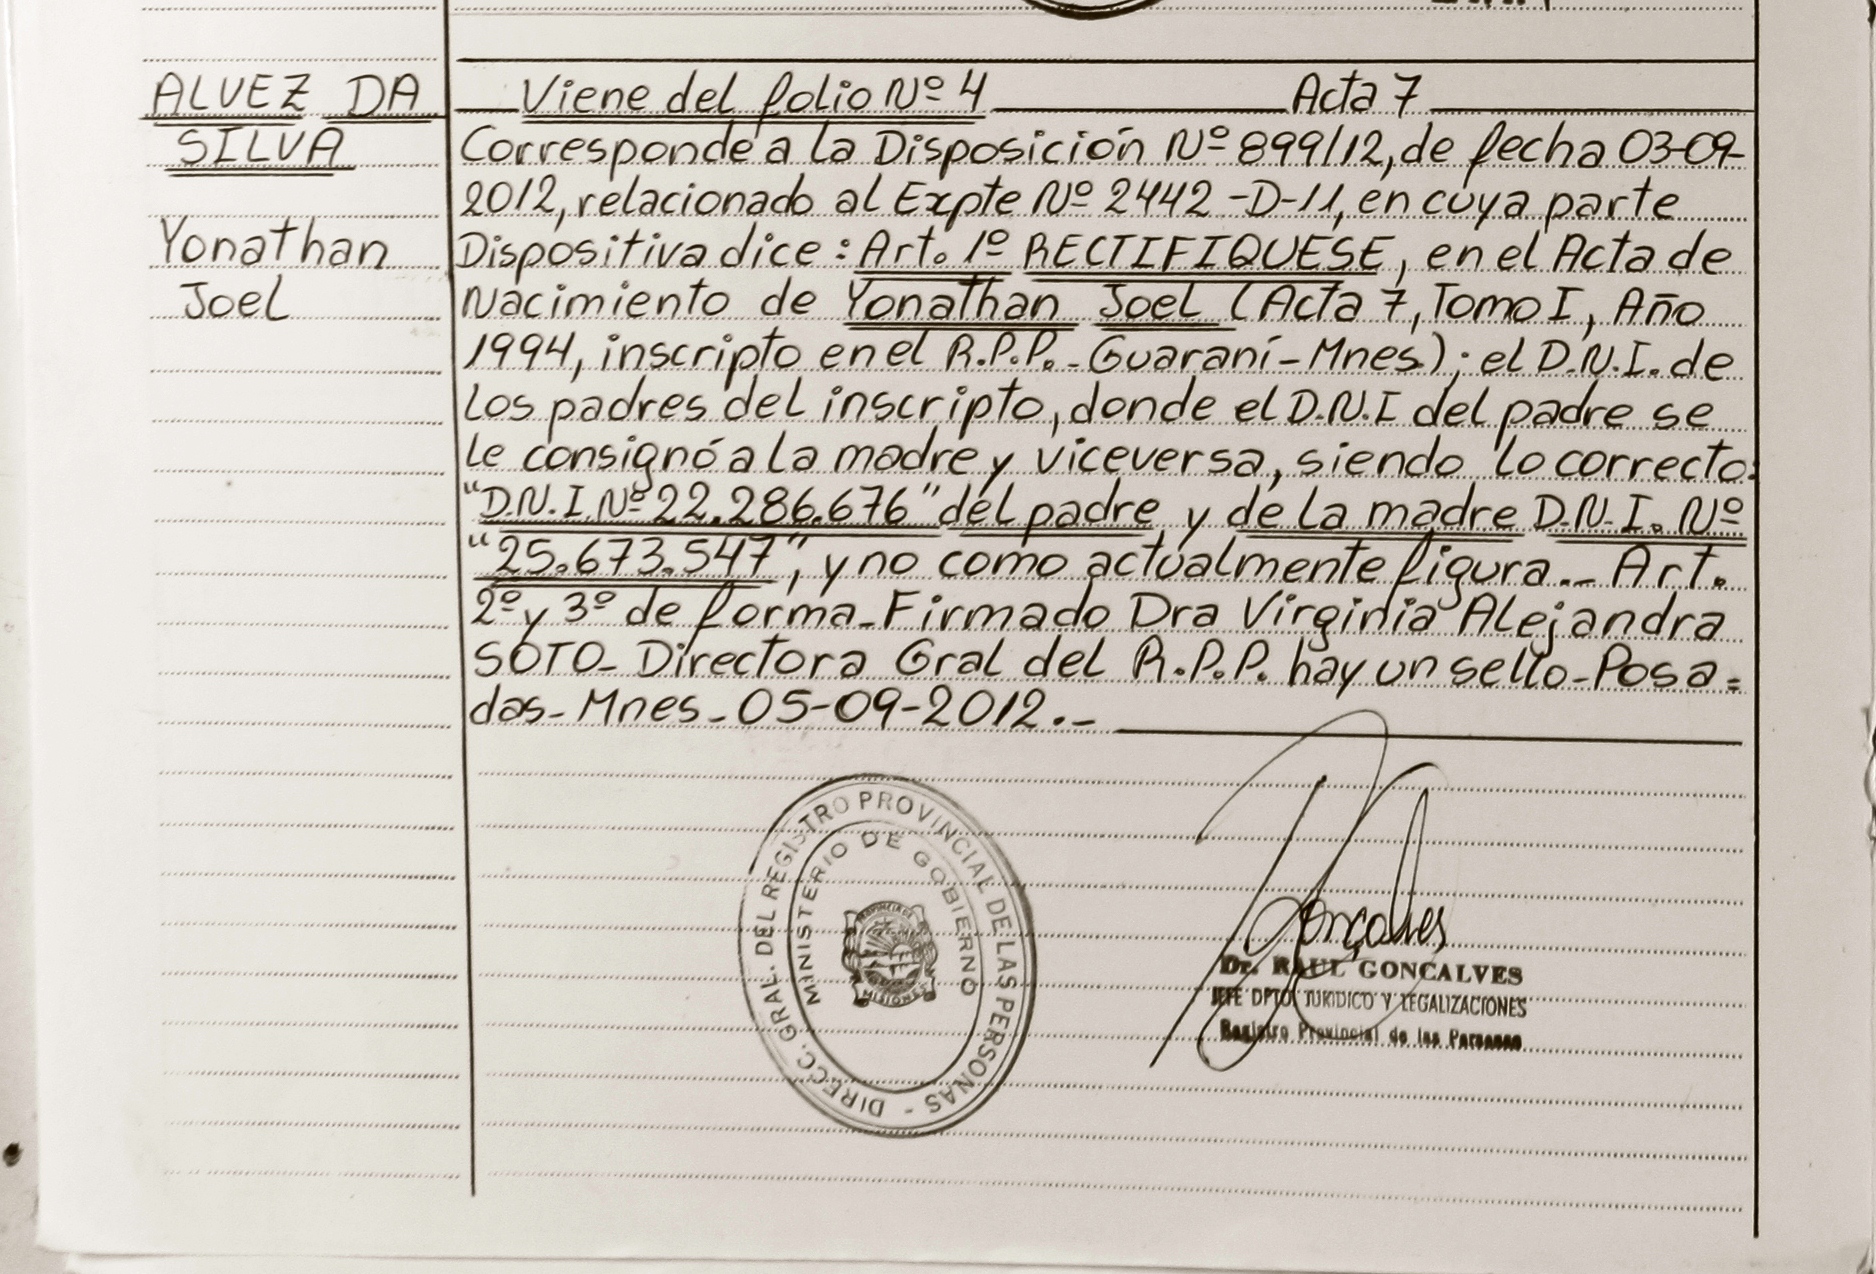 ALVEZ DA
SILVA
Yonathan
Joel
Viene del folio Nº 4 Acta 7
Corresponde a la Disposición Nº 899/12, de fecha 03-09-
2012, relacionado al Expte Nº 2442-D-11, en cuya parte
Dispositiva dice: Art. 1º RECTIFIQUESE, en el Acta de
Nacimiento de Yonathan Joel (Acta 7, Tomo I, Año
1994, inscripto en el R.P.P.-Guaraní-Mnes); el D.N.I. de
los padres del inscripto, donde el D.N.I del padre se
le consignó a la madre y viceversa, siendo lo correcto:
"D.N.I. Nº 22.286.676" del padre y de la madre D.N.I. Nº
"25.673.547", y no como actualmente figura.- Art.
2º y 3º de forma-Firmado Dra Virginia Alejandra
SOTO-Directora Gral del R.P.P. hay un sello-Posa=
das-Mnes-05-09-2012.-
DIRECC. GRAL. DEL REGISTRO PROVINCIAL DE LAS PERSONAS -
MINISTERIO DE GOBIERNO
PROVINCIA DE
MISIONES
Gonçalves
Dr. RAUL GONCALVES
JEFE DPTO. JURIDICO Y LEGALIZACIONES
Registro Provincial de las Personas